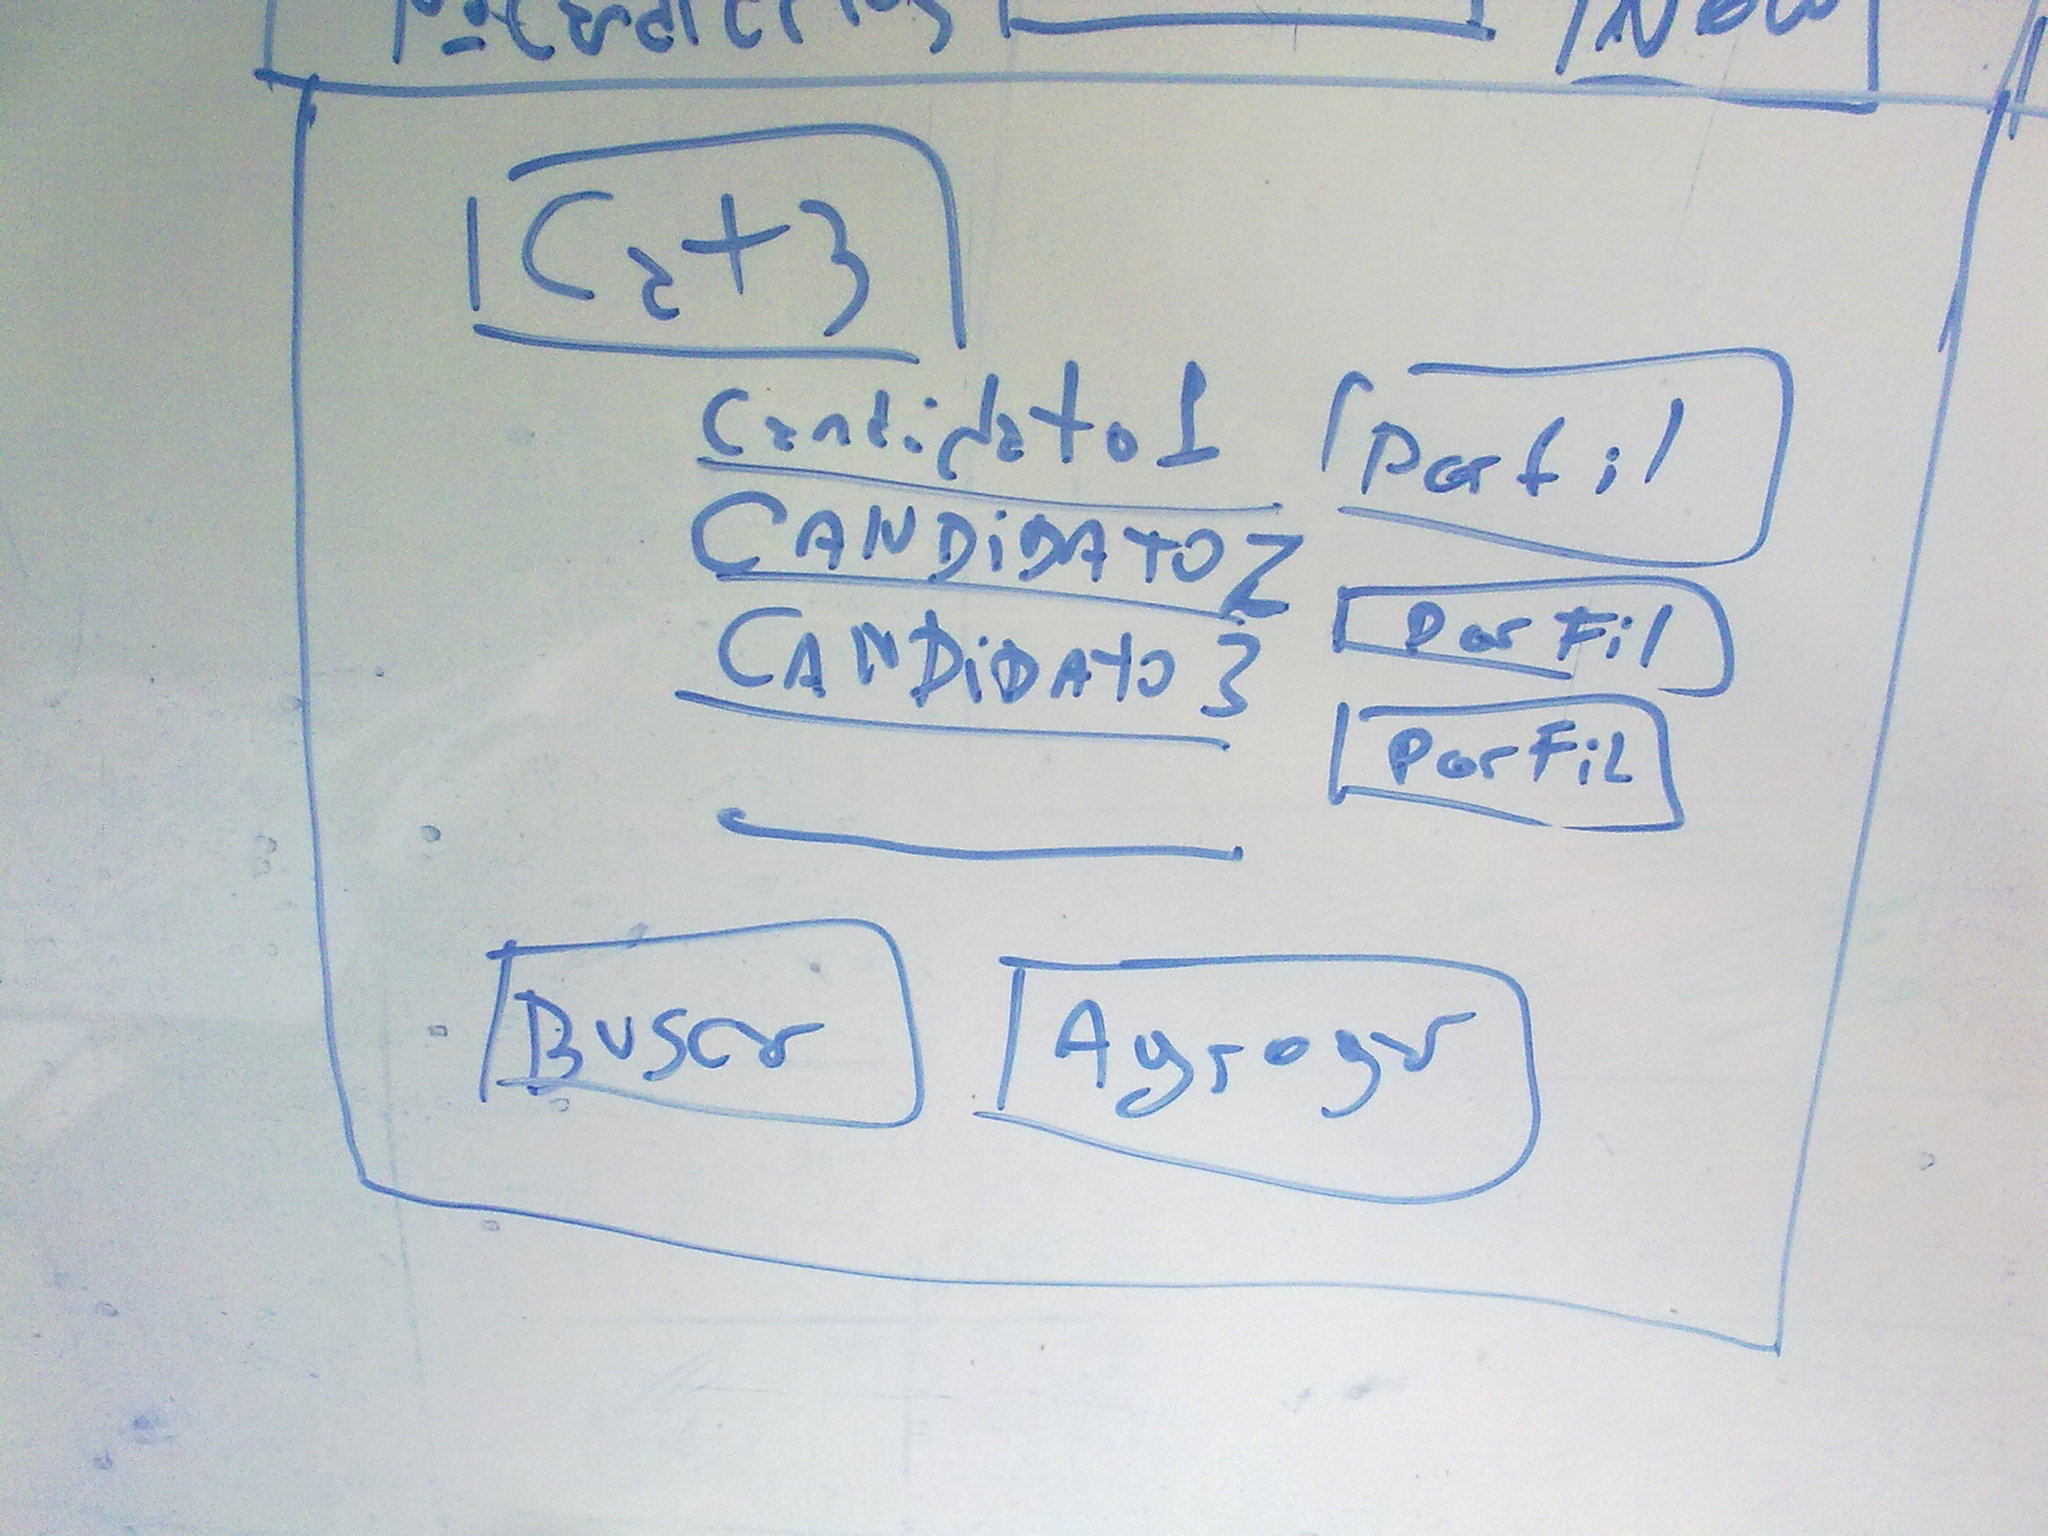 New
Cat 3
Candidato 1 Perfil
CANDiDATO 2 PerFil
CANDiDATO 3 PerFil
Buscar Agregar